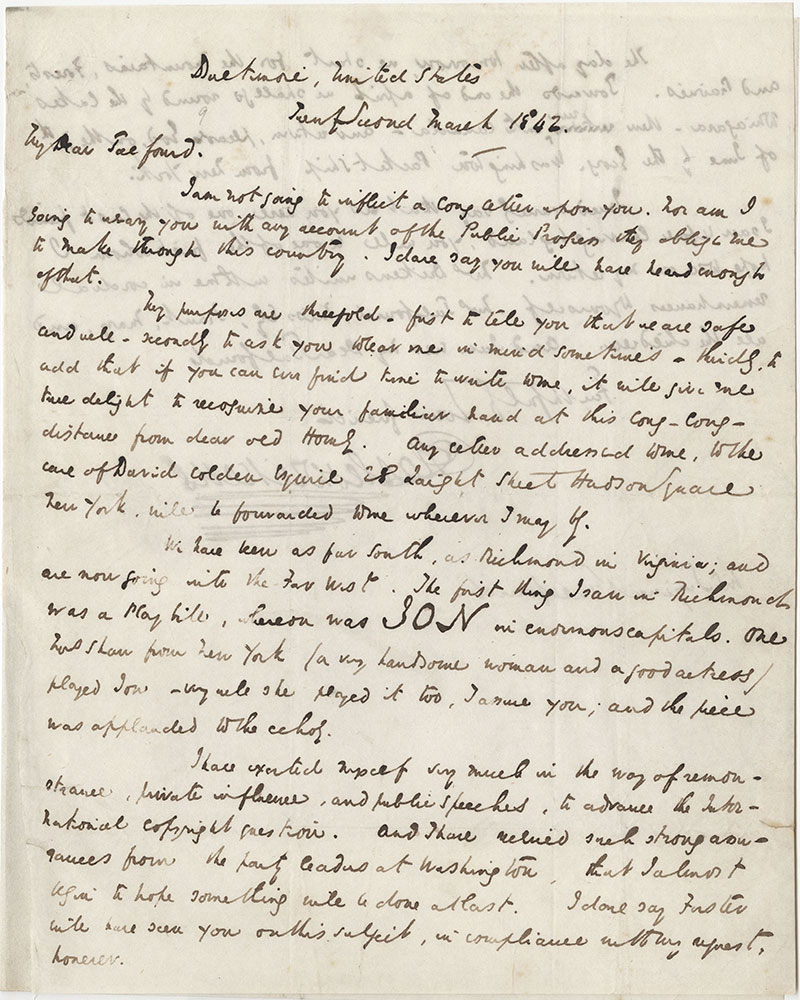 Baltimore, United States
Twenty Second March 1842.
My Dear Talfourd.
I am not going to inflict a long letter upon you. Nor am I
going to weary you with any account of the Public Progress they oblige me
to make through this country. I dare say you will have heard enough
of that.
My purposes are threefold - first to tell you that we are safe
and well - secondly to ask you to bear me in mind sometimes - thirdly, to
add that if you can ever find time to write to me, it will give me
true delight to recognize your familiar hand at this long - long -
distance from dear old Home. Any letter addressed to me, to the
care of David Colden Esquire 28 Laight Street Hudson Square
New York, will be forwarded to me wherever I may be.
We have been as far South, as Richmond in Virginia; and
are now going into the Far West. The first thing I saw in Richmond
was a Play bill, whereon was ION in enormous capitals. One
Mrs Shaw from New York (a very handsome woman and a good actress)
played Ion - very well she played it too, I assure you; and the piece
was applauded to the echo.
I have exerted myself very much in the way of remon-
strance, private influence, and public speeches, to advance the Inter-
national copyright question. And I have received such strong assu-
rances from the party leaders at Washington, that I almost
begin to hope something will be done at last. I dare say Forster
will have seen you on this subject, in compliance with my request,
however.